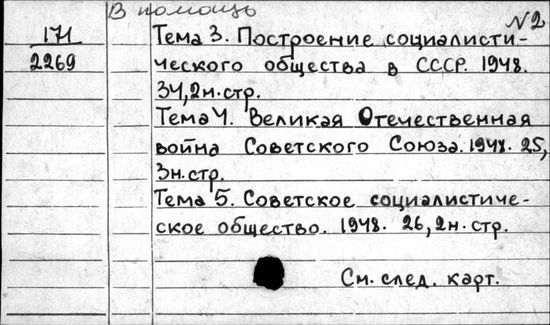 В помощь
№2
171
2269
Тема 3. Построение социалисти-
ческого общества в СССР. 1948.
34, 2н.стр.
Тема 4. Великая Отечественная
война Советского Союза. 1948. 25,
3н.стр.
Тема 5. Советское социалистиче-
ское общество. 1948. 26, 2н.стр.
См. след. карт.